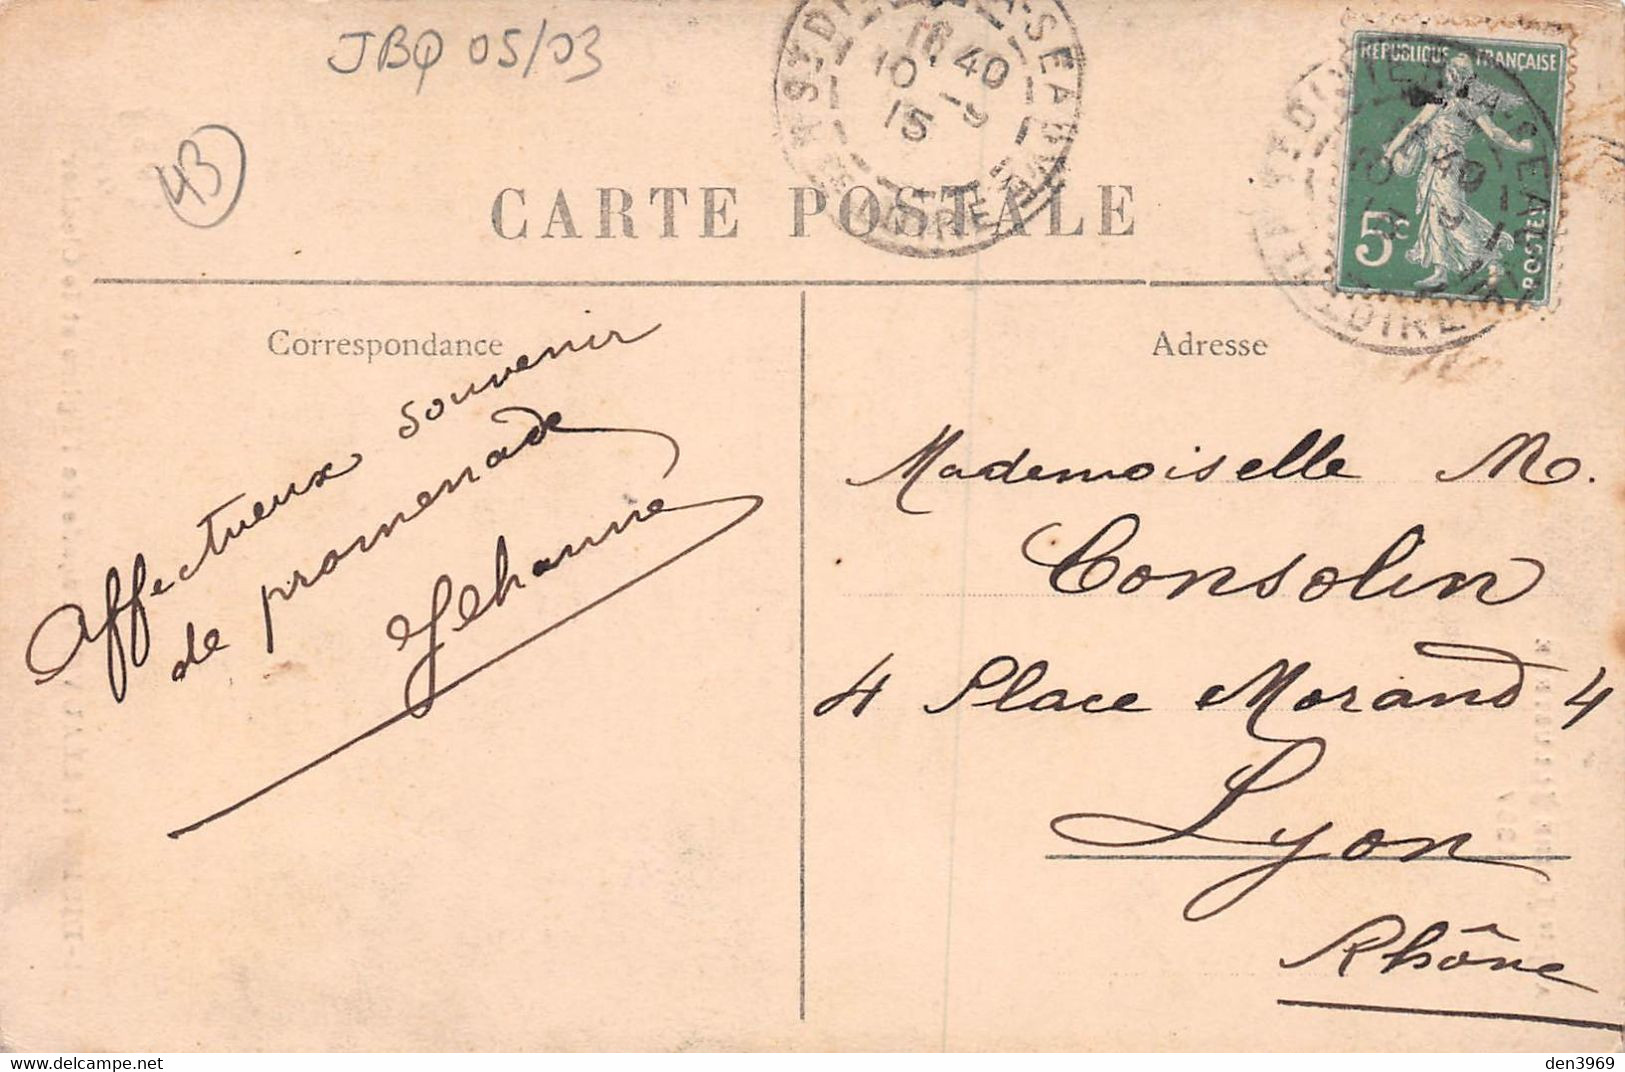 JBQ 05/03
43
16 40
10 -9
15
CARTE POSTALE
RÉPUBLIQUE FRANÇAISE
5c
POSTES
Correspondance
Adresse
Affectueux souvenir
de promenade
Jehanne
Mademoiselle M.
Consolin
4 Place Morand 4
Lyon
Rhône
www.delcampe.net
den3969